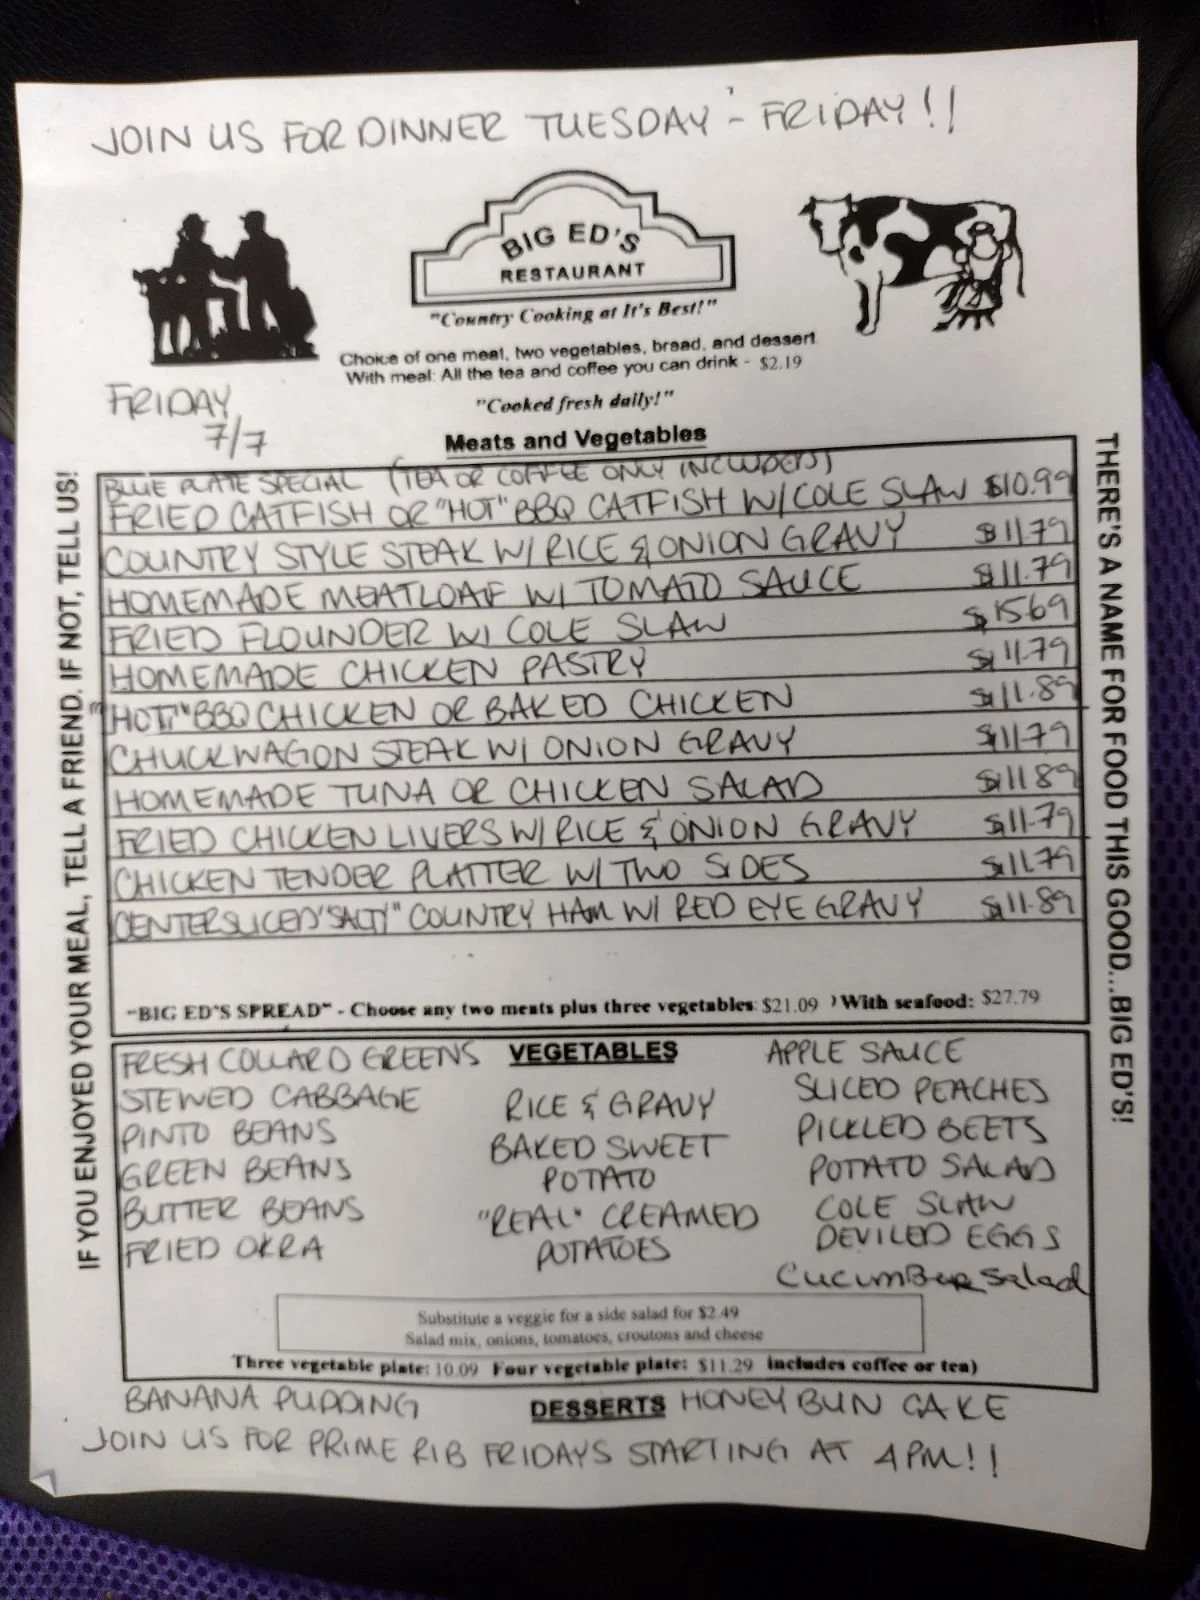 JOIN US FOR DINNER TUESDAY - FRIDAY!!
BIG ED'S
RESTAURANT
"Country Cooking at It's Best!"
Choice of one meat, two vegetables, bread, and dessert
With meal: All the tea and coffee you can drink - $2.19
"Cooked fresh daily!"
FRIDAY
7/7
Meats and Vegetables
IF YOU ENJOYED YOUR MEAL, TELL A FRIEND. IF NOT, TELL US!
THERE'S A NAME FOR FOOD THIS GOOD...BIG ED'S!
BLUE PLATE SPECIAL (TEA OR COFFEE ONLY INCLUDED)
FRIED CATFISH OR "HOT" BBQ CATFISH W/ COLE SLAW $10.99
COUNTRY STYLE STEAK W/ RICE & ONION GRAVY $11.79
HOMEMADE MEATLOAF W/ TOMATO SAUCE $11.79
FRIED FLOUNDER W/ COLE SLAW $15.69
HOMEMADE CHICKEN PASTRY $11.79
"HOT" BBQ CHICKEN OR BAKED CHICKEN $11.89
CHUCKWAGON STEAK W/ ONION GRAVY $11.79
HOMEMADE TUNA OR CHICKEN SALAD $11.89
FRIED CHICKEN LIVERS W/ RICE & ONION GRAVY $11.79
CHICKEN TENDER PLATTER W/ TWO SIDES $11.79
CENTERSLICED "SALTY" COUNTRY HAM W/ RED EYE GRAVY $11.89
"BIG ED'S SPREAD" - Choose any two meats plus three vegetables: $21.09 ) With seafood: $27.79
VEGETABLES
FRESH COLLARD GREENS
STEWED CABBAGE
PINTO BEANS
GREEN BEANS
BUTTER BEANS
FRIED OKRA
RICE & GRAVY
BAKED SWEET
POTATO
"REAL" CREAMED
POTATOES
APPLE SAUCE
SLICED PEACHES
PICKLED BEETS
POTATO SALAD
COLE SLAW
DEVILED EGGS
CUCUMBER Salad
Substitute a veggie for a side salad for $2.49
Salad mix, onions, tomatoes, croutons and cheese
Three vegetable plate: 10.09 Four vegetable plate: $11.29 includes coffee or tea)
BANANA PUDDING DESSERTS HONEY BUN CAKE
JOIN US FOR PRIME RIB FRIDAYS STARTING AT 4PM!!